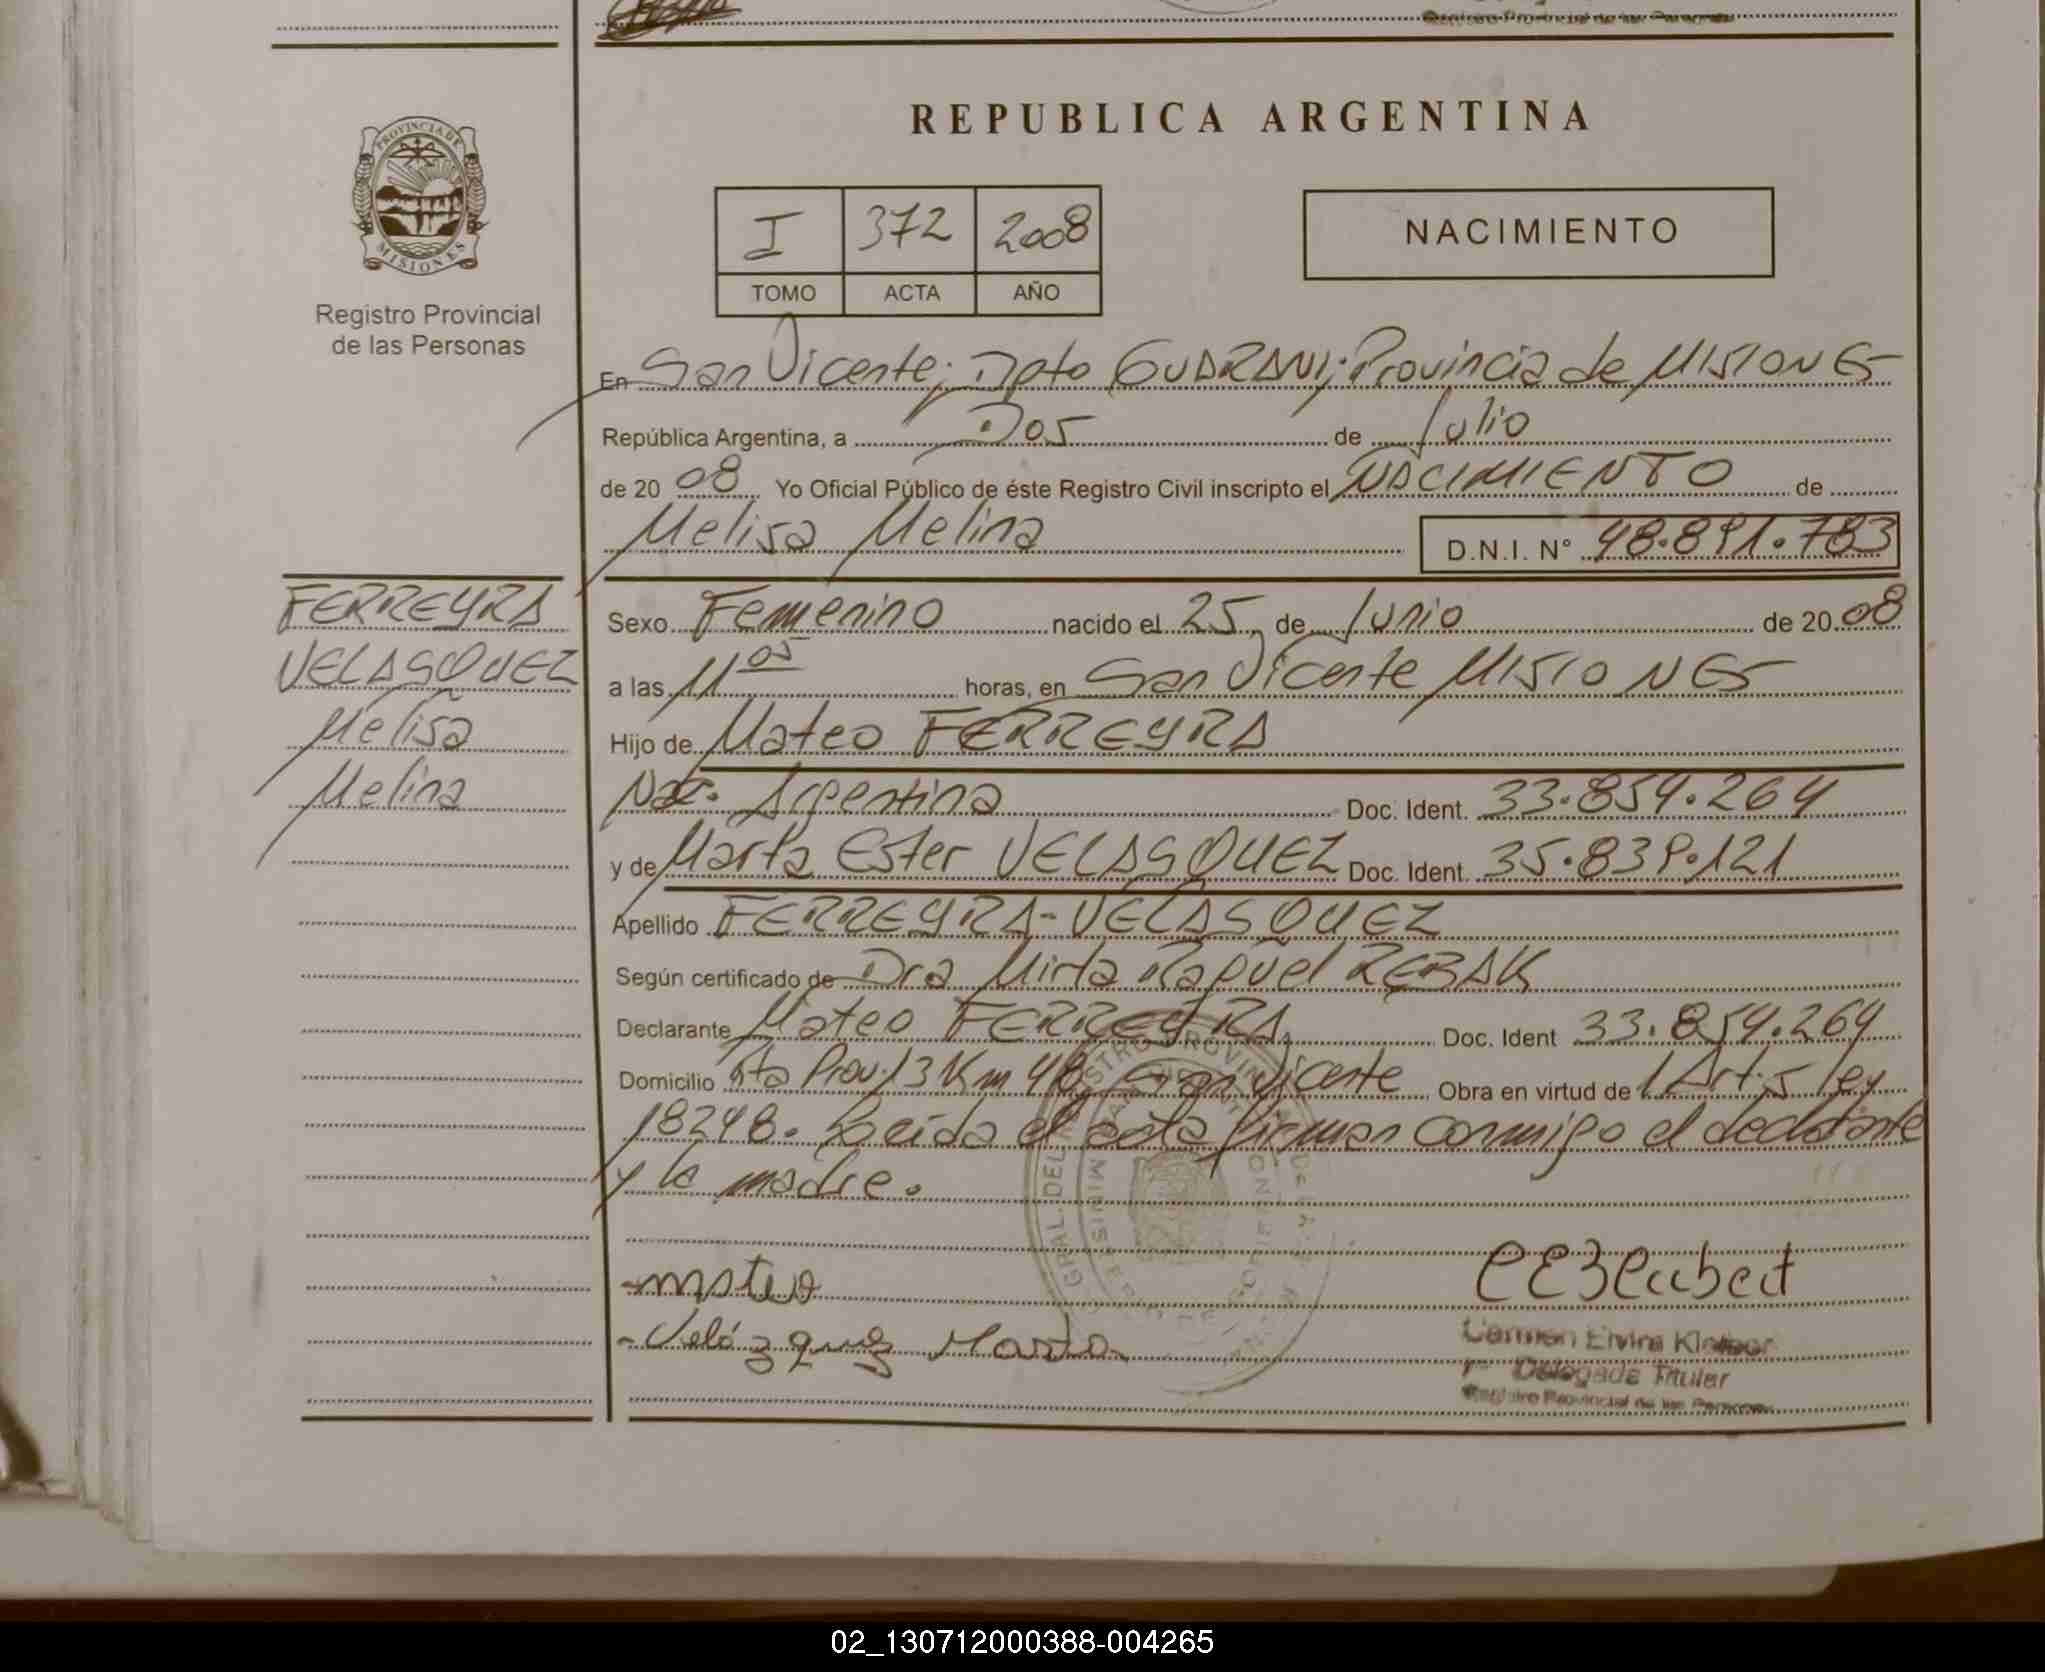 Registro Provincial de las Personas
REPUBLICA ARGENTINA
PROVINCIA DE
MISIONES
Registro Provincial
de las Personas
I 372 2008
TOMO ACTA AÑO
NACIMIENTO
En San Vicente; Dpto GUARANI; Provincia de MISIONES
República Argentina, a Dos de Julio
de 2008 Yo Oficial Público de éste Registro Civil inscripto el NACIMIENTO de
Melisa Melina D.N.I. N° 48.891.783
FERREYRA
VELASQUEZ
Melisa
Melina
Sexo Femenino nacido el 25 de Junio de 2008
a las 11 05 horas, en San Vicente MISIONES
Hijo de Mateo FERREYRA
Nac. Argentina Doc. Ident. 33.859.264
y de Marta Ester VELASQUEZ Doc. Ident. 35.839.121
Apellido FERREYRA-VELASQUEZ
Según certificado de Dra Mirta Raquel REBAK
Declarante Mateo FERREYRA Doc. Ident 33.859.264
Domicilio Rta Prov. 13 Km 48 San Vicente Obra en virtud de Art. 5 ley
18248. Leída el acta firman conmigo el declarante
y la madre.
-mateo
-Velázquez Marta
Carmen Elvira
Delegada Titular
Registro Provincial de las Personas
02_130712000388-004265